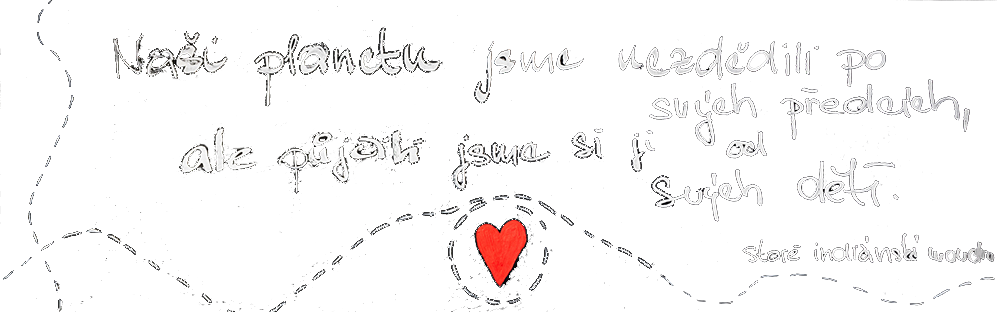 Naši planetu jsme nezdědili po
svých předcích,
ale půjčili jsme si ji od
svých dětí.
staré indiánské moudro